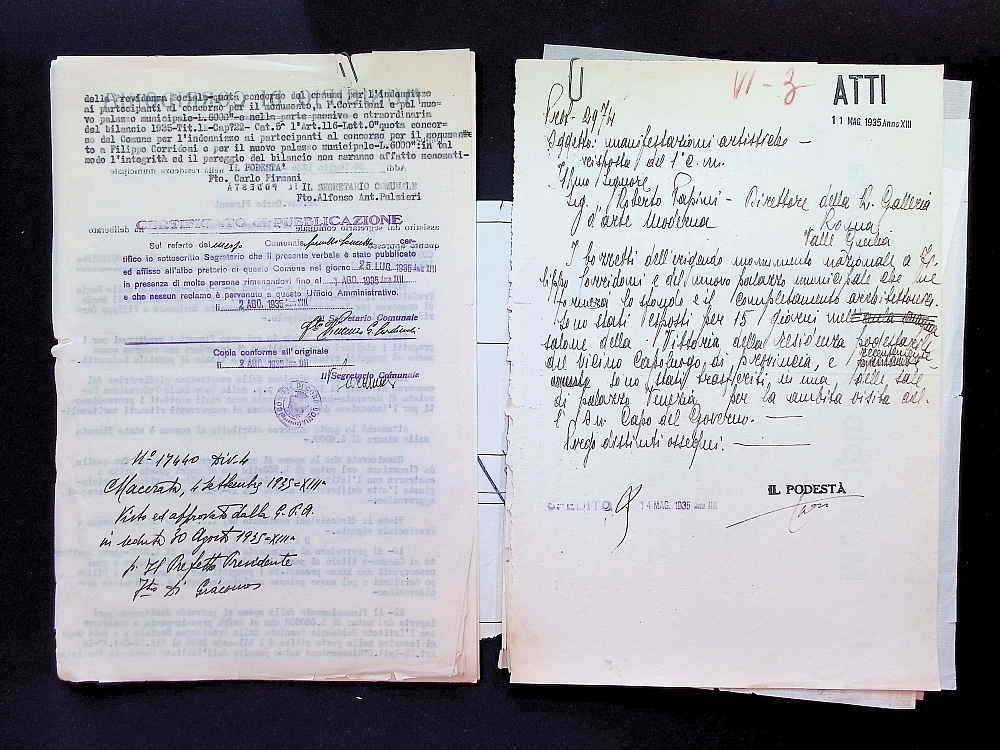 della Previdenza Sociale quota concorso del comune per l'indennizzo
ai partecipanti al concorso per il monumento a F.Corridoni e pel nuo-
vo palazzo municipale-L.6000"-e nella parte passiva e straordinaria
del bilancio 1935-Tit.1°-Cap?22- Cat.5^ l'Art.116-Lett.0"quota concor-
so del Comune per l'indennizzo ai partecipanti al concorso per il monumen
to a Filippo Corridoni e per il nuovo palazzo municipale-L.6000":in tal
modo l'integrità ed il pareggio del bilancio non saranno affatto menomati-
IL PODESTA'
Fto. Carlo Firmani
IL SEGRETARIO COMUNALE
Fto.Alfonso Ant.Palmieri
CERTIFICATO DI PUBBLICAZIONE
Sul referto del messo Comunale cer-
tifico io sottoscritto Segretario che il presente verbale è stato pubblicato
ed affisso all'albo pretorio di questo Comune nel giorno 25 LUG. 1935 Anno XIII
in presenza di molte persone rimanendovi fino al 1 AGO. 1935 Anno XIII
e che nessun reclamo è pervenuto a questo Ufficio Amministrativo.
li 2 AGO. 1935 Anno XIII
Il Segretario Comunale
Copia conforme all'originale
li 2 AGO. 1935 Anno XIII
Il Segretario Comunale
N° 17440 Div. 4
Macerata, 4 Settembre 1935=XIII=
Visto ed approvato dalla G.P.A.
in seduta 30 Agosto 1935=XIII=
p. Il Prefetto Presidente
Fto Di Giacomo
VI - 3
ATTI
11 MAG. 1935 Anno XIII
Prot. 2974
Oggetto: manifestazioni artistiche -
risposta del 1° c.m.
Ill/mo Signore
Sig. Roberto Papini - Direttore della R. Galleria
d'arte Moderna Roma
Valle Giulia
I bozzetti dell'erigendo monumento nazionale a Fi-
lippo Corridoni e del nuovo palazzo municipale che ne
formerà lo sfondo e il completamento architettonico
sono stati esposti per 15 giorni nel
salone della Vittoria della residenza podestarile
del vicino Capoluogo di provincia, e recentemente
sono stati trasferiti, in una delle sale
di palazzo Venezia per la ambita visita del-
l'On. Capo del Governo. -
Porgo distinti ossequi. -
SPEDITO 14 MAG. 1935 Anno XIII
IL PODESTÀ